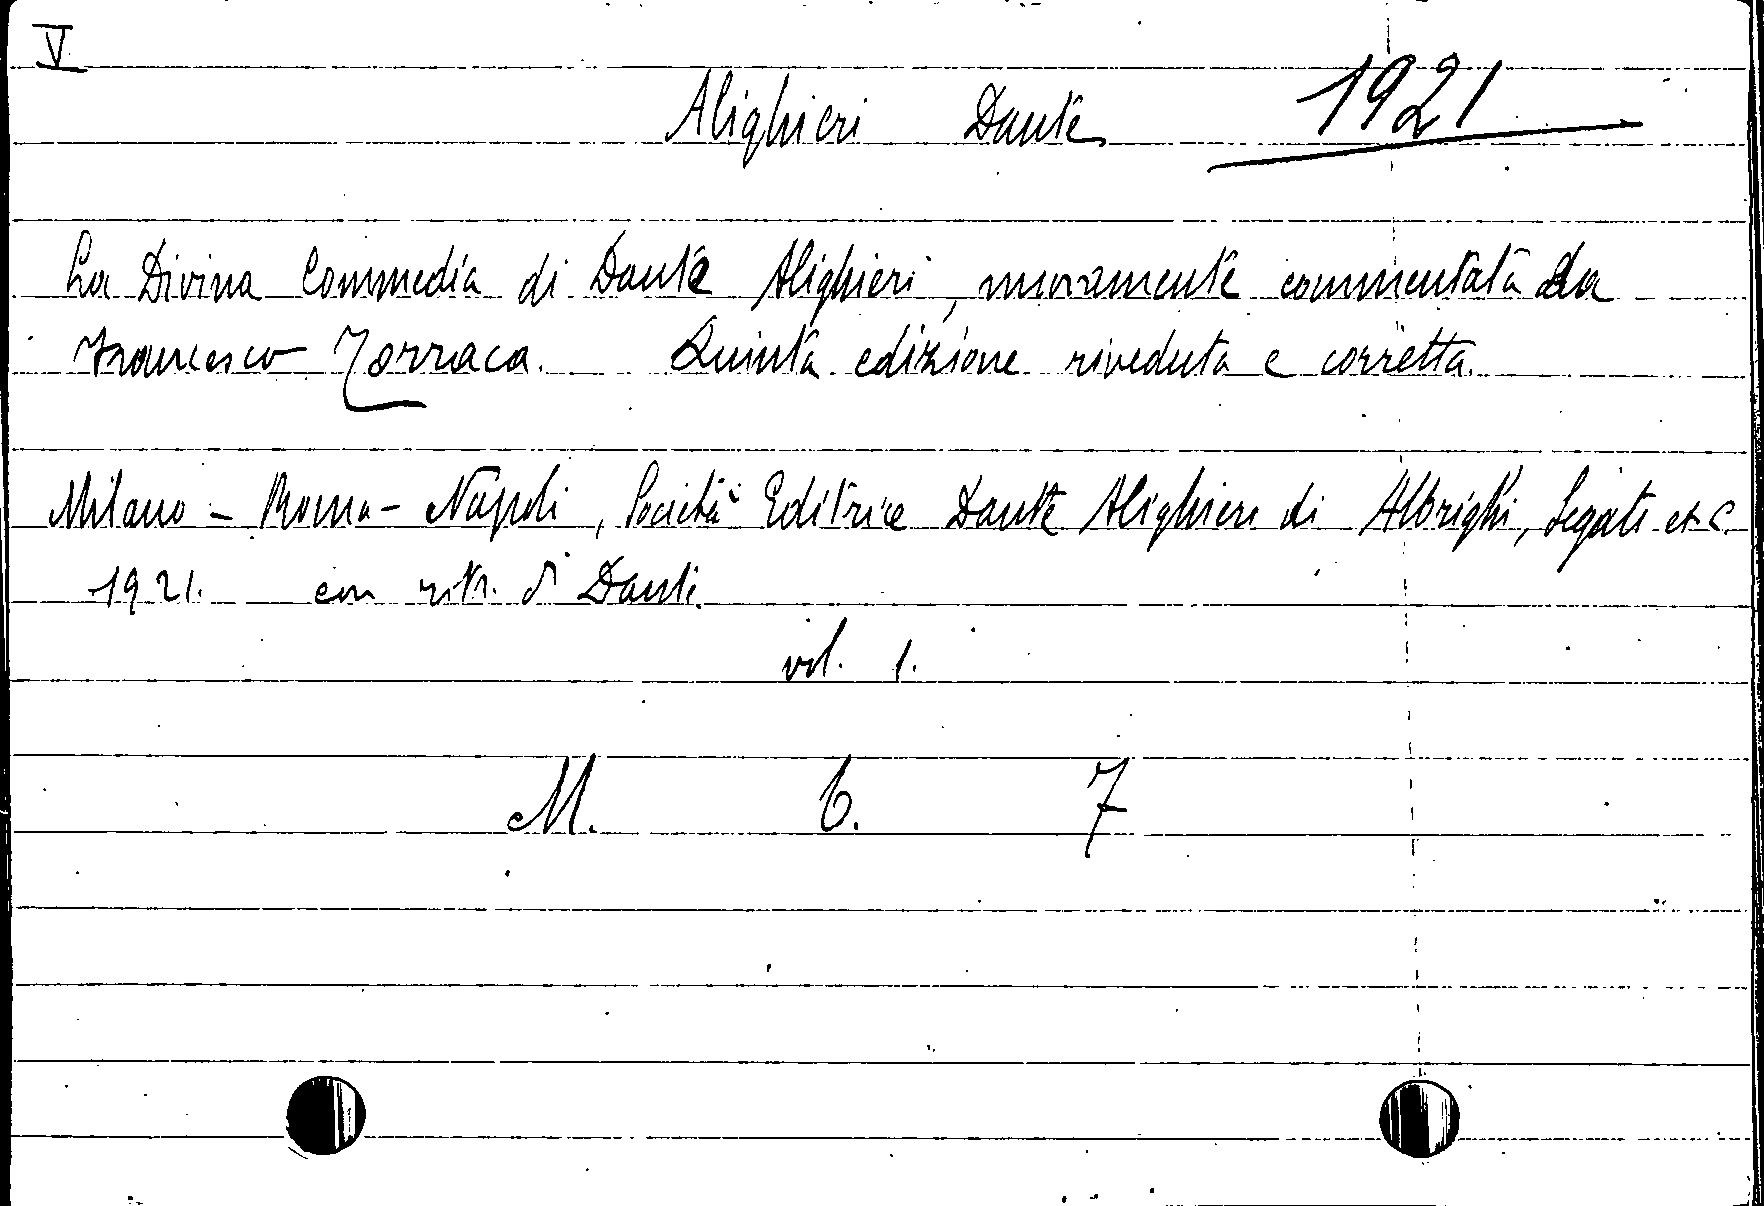 V
Alighieri Dante 1921
La Divina Commedia di Dante Alighieri, nuovamente commentata da
Francesco Torraca. Quinta edizione riveduta e corretta.
Milano - Roma - Napoli, Società Editrice Dante Alighieri di Albrighi, Segati et C.
1921. con ritr. di Dante.
vol. 1.
M. 6. 7